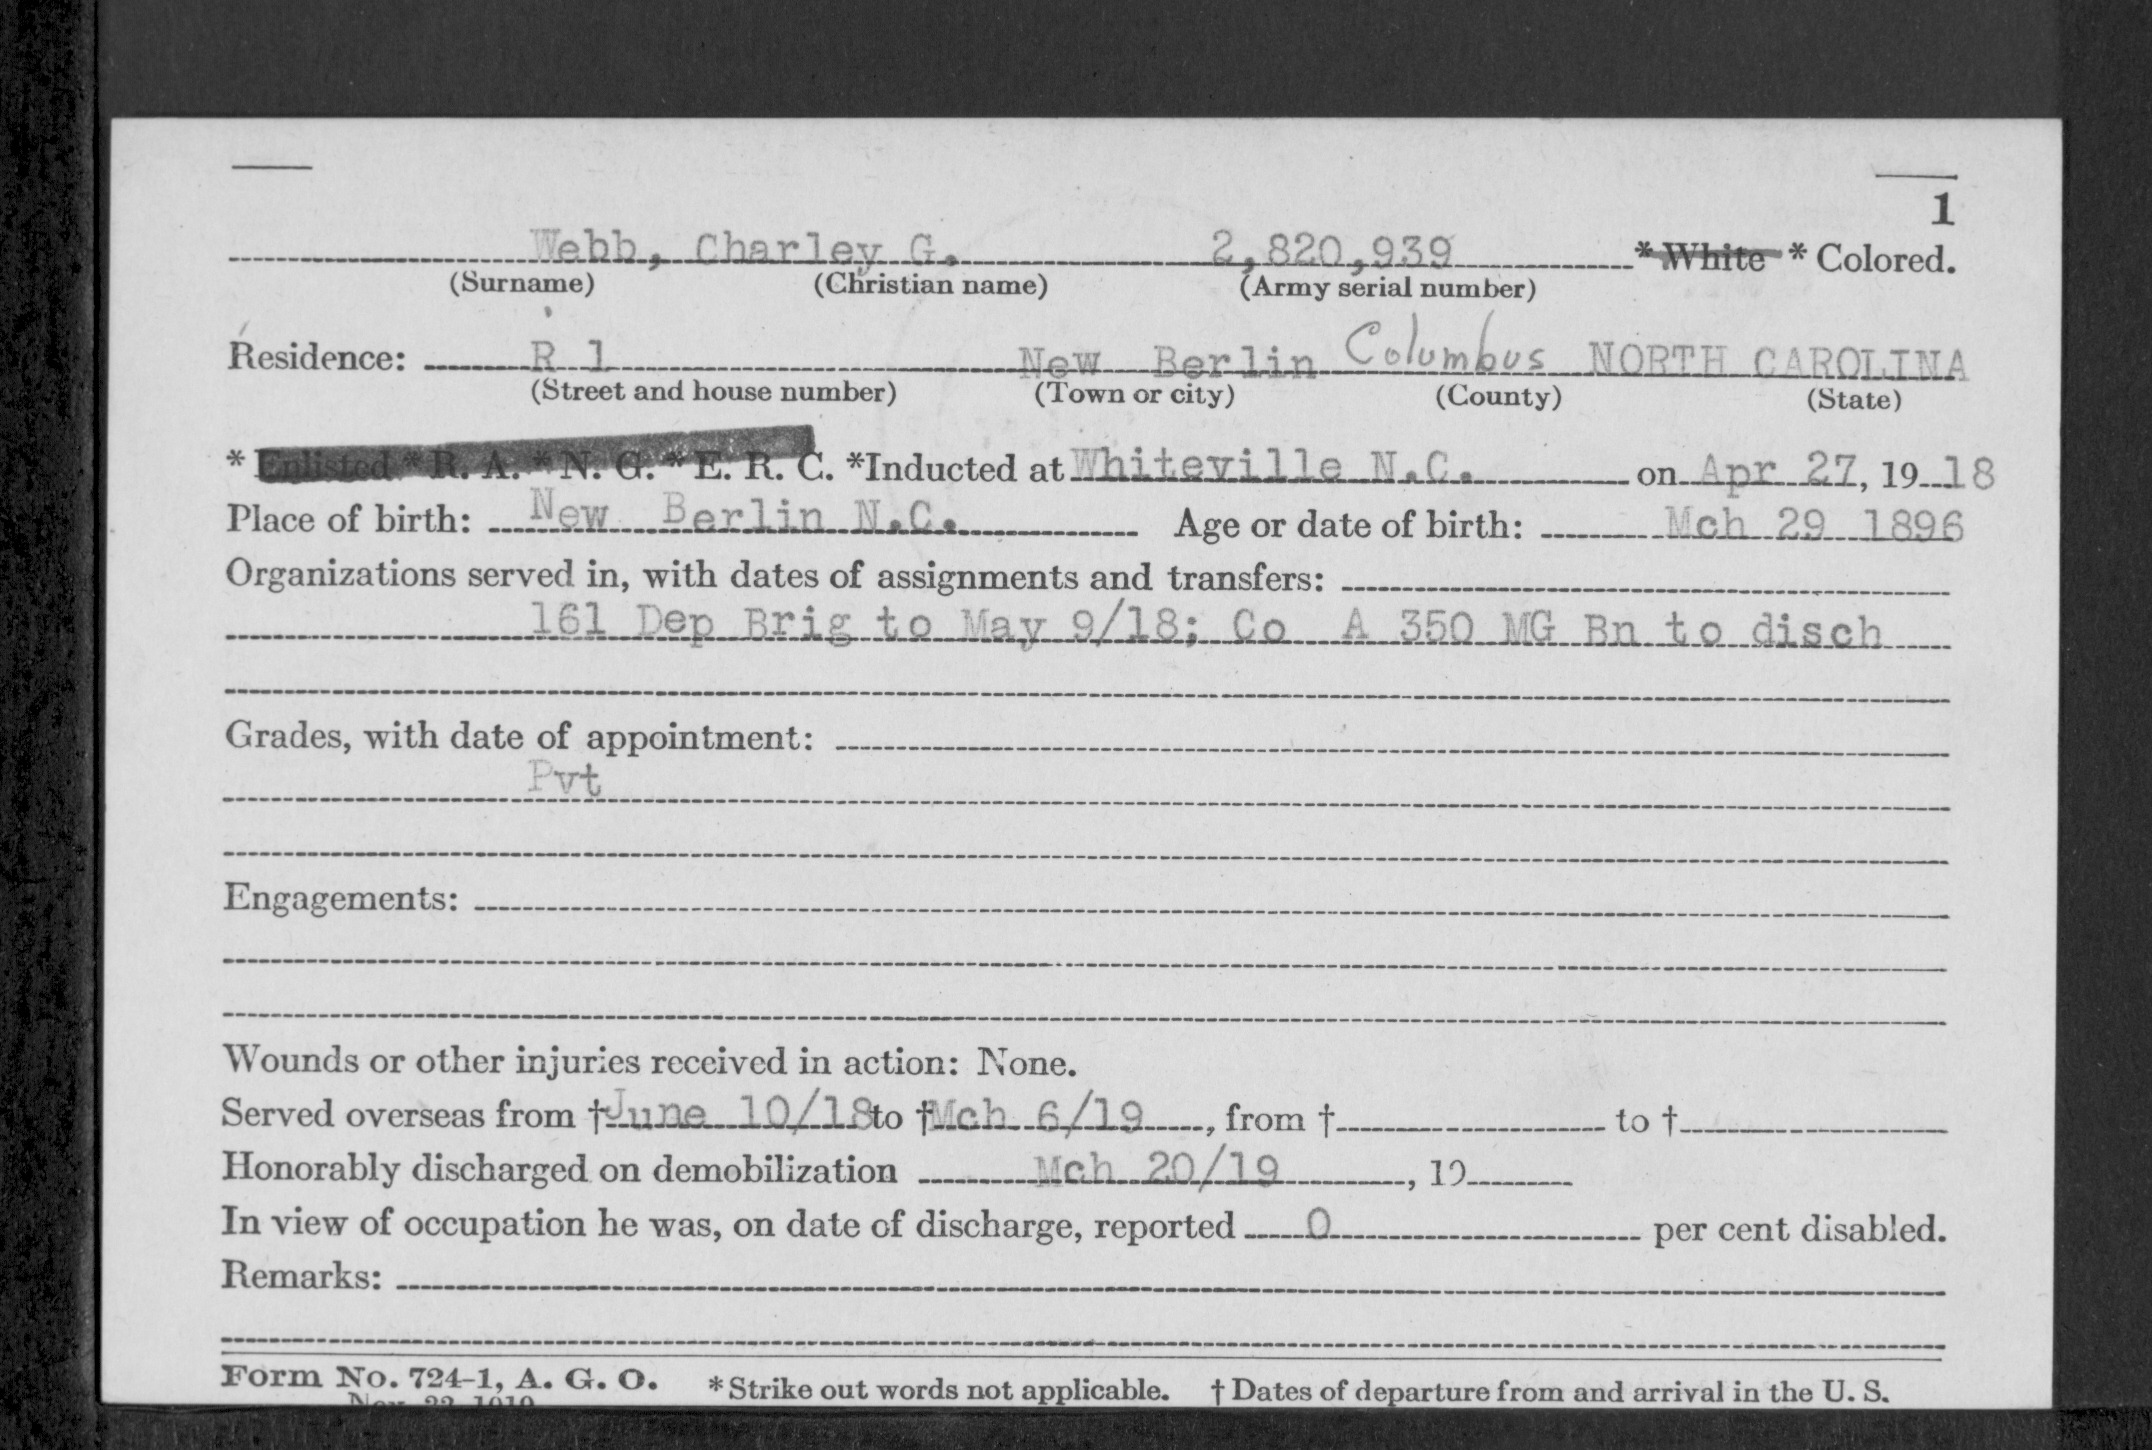 1
Webb, Charley G. 2,820,939 * White * Colored.
(Surname) (Christian name) (Army serial number)
Residence: R 1 New Berlin Columbus NORTH CAROLINA
(Street and house number) (Town or city) (County) (State)
* Enlisted * R. A. * N. G. * E. R. C. *Inducted at Whiteville N.C. on Apr 27, 19 18
Place of birth: New Berlin N.C. Age or date of birth: Mch 29 1896
Organizations served in, with dates of assignments and transfers:
161 Dep Brig to May 9/18; Co A 350 MG Bn to disch
Grades, with date of appointment:
Pvt
Engagements:
Wounds or other injuries received in action: None.
Served overseas from † June 10/18 to † Mch 6/19, from † to †
Honorably discharged on demobilization Mch 20/19, 19
In view of occupation he was, on date of discharge, reported 0 per cent disabled.
Remarks:
Form No. 724-1, A. G. O. * Strike out words not applicable. † Dates of departure from and arrival in the U. S.
Nov. 22, 1919